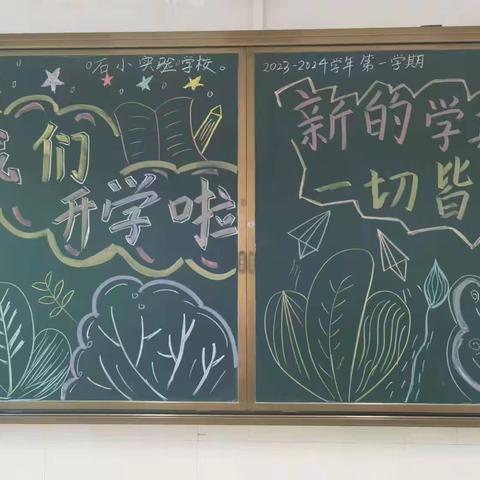 石小实验学校。
我们
开学啦
2023-2024学年第一学期
新的学
一切皆